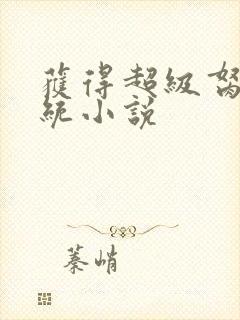 獲得超級
統小說
蓁峭